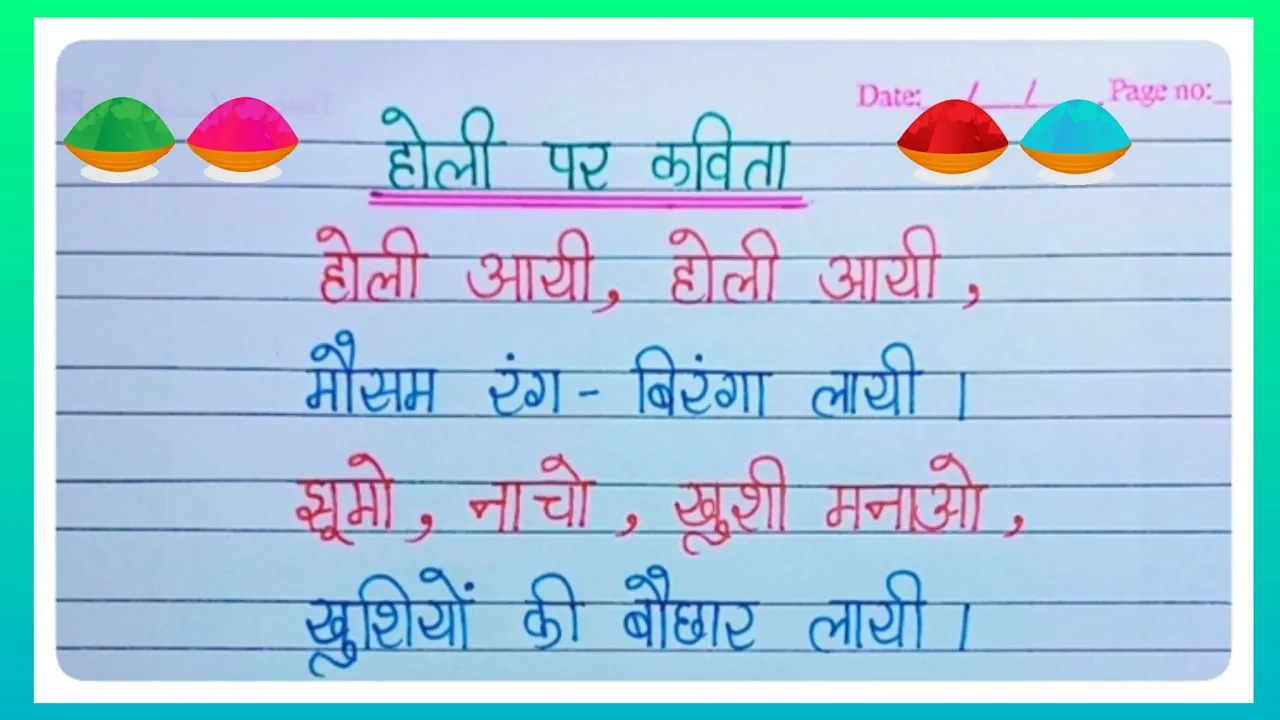 Date: / / Page no:
होली पर कविता
होली आयी, होली आयी,
मौसम रंग-बिरंगा लायी।
झूमो, नाचो, खुशी मनाओ,
खुशियों की बौछार लायी।